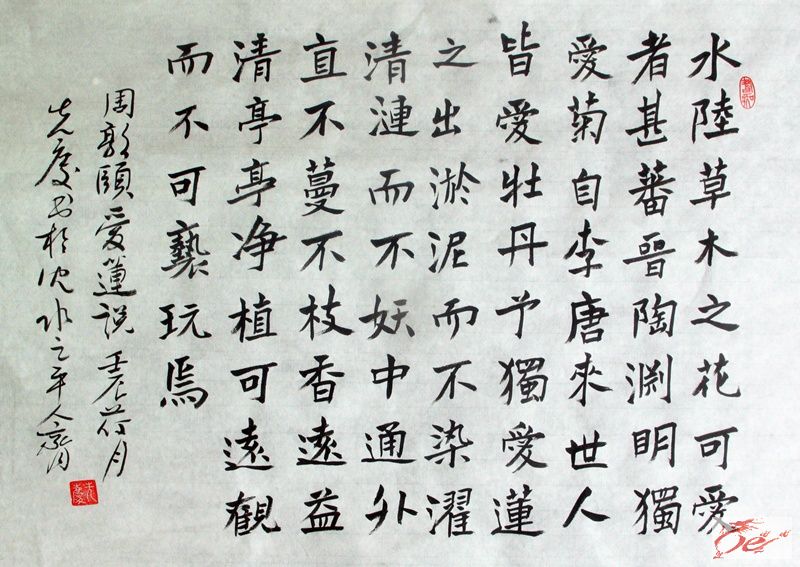 水陸草木之花可愛
者甚蕃晉陶渊明獨
愛菊自李唐來世人
皆愛牡丹予獨愛蓮
之出淤泥而不染濯
清漣而不妖中通外
直不蔓不枝香遠益
清亭亭净植可遠觀
而不可褻玩焉
周敦頤愛蓮説 壬辰荷月
先慶书於沈水之平人齋